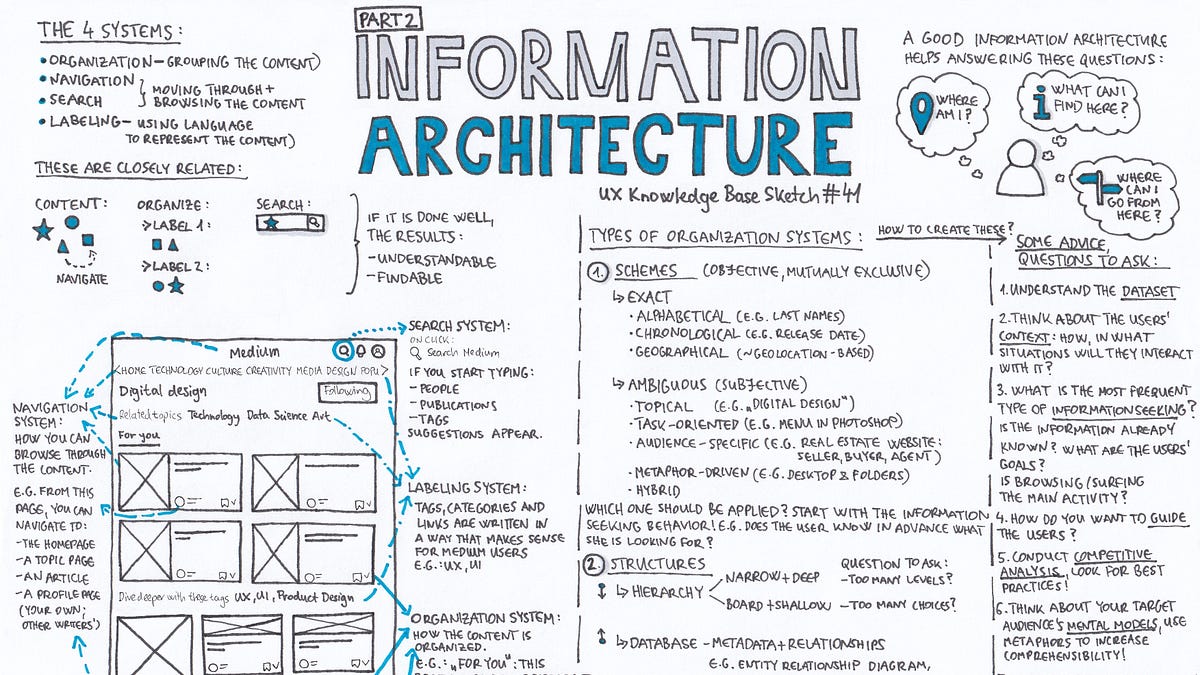 THE 4 SYSTEMS:
•ORGANIZATION-GROUPING THE CONTENT)
•NAVIGATION
•SEARCH
MOVING THROUGH+
BROWSING THE CONTENT
•LABELING- USING LANGUAGE
TO REPRESENT THE CONTENT)
THESE ARE CLOSELY RELATED:
CONTENT:
NAVIGATE
ORGANIZE:
>LABEL 1:
>LABEL 2:
SEARCH:
IF IT IS DONE WELL,
THE RESULTS:
-UNDERSTANDABLE
-FINDABLE
PART 2
INFORMATION
ARCHITECTURE
UX Knowledge Base Sketch #41
A GOOD INFORMATION ARCHITECTURE
HELPS ANSWERING THESE QUESTIONS:
WHERE
AM I?
WHAT CAN I
FIND HERE?
WHERE
CAN I
GO FROM
HERE?
Medium
<HOME TECHNOLOGY CULTURE CREATIVITY MEDIA DESIGN POPU>
Digital design
Following
Related topics Technology Data Science Art
For you
Dive deeper with these tags UX, UI, Product Design
NAVIGATION
SYSTEM:
HOW YOU CAN
BROWSE THROUGH
THE CONTENT.
E.G. FROM THIS
PAGE, YOU CAN
NAVIGATE TO:
-THE HOMEPAGE
-A TOPIC PAGE
-AN ARTICLE
-A PROFILE PAGE
(YOUR OWN;
OTHER WRITERS')
SEARCH SYSTEM:
ON CLICK:
Search Medium
IF YOU START TYPING:
-PEOPLE
-PUBLICATIONS
-TAGS
SUGGESTIONS APPEAR.
LABELING SYSTEM:
TAGS, CATEGORIES AND
LINKS ARE WRITTEN IN
A WAY THAT MAKES SENSE
FOR MEDIUM USERS
E.G.:UX, UI
ORGANIZATION SYSTEM:
HOW THE CONTENT IS
ORGANIZED.
E.G.: „FOR YOU": THIS
TYPES OF ORGANIZATION SYSTEMS:
HOW TO CREATE THESE?
1. SCHEMES (OBJECTIVE, MUTUALLY EXCLUSIVE)
↳ EXACT
• ALPHABETICAL (E.G. LAST NAMES)
• CHRONOLOGICAL (E.G. RELEASE DATE)
• GEOGRAPHICAL (~GEOLOCATION-BASED)
↳ AMBIGUOUS (SUBJECTIVE)
• TOPICAL (E.G. „DIGITAL DESIGN")
• TASK-ORIENTED (E.G. MENU IN PHOTOSHOP)
• AUDIENCE-SPECIFIC (E.G. REAL ESTATE WEBSITE:
SELLER, BUYER, AGENT)
• METAPHOR-DRIVEN (E.G. DESKTOP & FOLDERS)
• HYBRID
WHICH ONE SHOULD BE APPLIED? START WITH THE INFORMATION
SEEKING BEHAVIOR! E.G. DOES THE USER KNOW IN ADVANCE WHAT
SHE IS LOOKING FOR?
2. STRUCTURES
↳ HIERARCHY
NARROW+DEEP
BOARD+SHALLOW
QUESTION TO ASK:
-TOO MANY LEVELS?
-TOO MANY CHOICES?
↳ DATABASE -METADATA+RELATIONSHIPS
E.G. ENTITY RELATIONSHIP DIAGRAM,
SOME ADVICE,
QUESTIONS TO ASK:
1. UNDERSTAND THE DATASET
2. THINK ABOUT THE USERS'
CONTEXT: HOW, IN WHAT
SITUATIONS WILL THEY INTERACT
WITH IT?
3. WHAT IS THE MOST FREQUENT
TYPE OF INFORMATION SEEKING?
IS THE INFORMATION ALREADY
KNOWN? WHAT ARE THE USERS'
GOALS?
IS BROWSING/SURFING
THE MAIN ACTIVITY?
4. HOW DO YOU WANT TO GUIDE
THE USERS?
5. CONDUCT COMPETITIVE
ANALYSIS, LOOK FOR BEST
PRACTICES!
6. THINK ABOUT YOUR TARGET
AUDIENCE'S MENTAL MODELS, USE
METAPHORS TO INCREASE
COMPREHENSIBILITY!